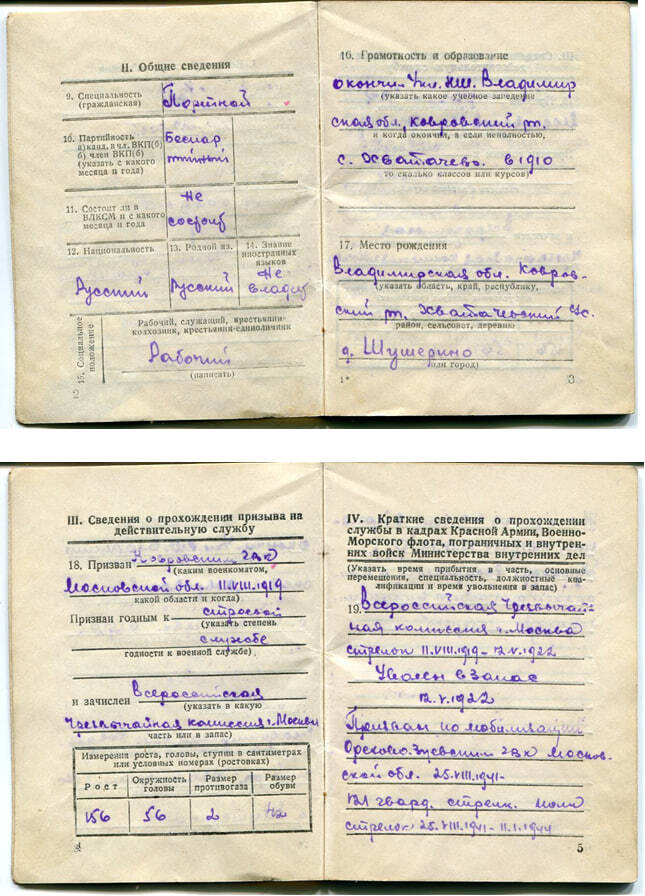 II. Общие сведения
9. Специальность
(гражданская)
Портной
10. Партийность
а) канд. в чл. ВКП(б)
б) член ВКП(б)
(указать с какого
месяца и года)
Беспар
тийный
11. Состоит ли в
ВЛКСМ и с какого
месяца и года
Не
состоит
12. Национальность
Русский
13. Родной яз.
Русский
14. Знание
иностранных
языков
Не
владеет
15. Социальное
положение
Рабочий, служащий, крестьянин-
колхозник, крестьянин-единоличник
Рабочий
(написать)
2
16. Грамотность и образование
окончил Владимир
(указать какое учебное заведение
ская обл., Ковровский
и когда окончил, а если неполностью,
с. Хватачево. в 1910
то сколько классов или курсов)
17. Место рождения
Владимирская обл. Ковров-
(указать область, край, республику,
ский Хватачевский с/с.
район, сельсовет, деревню
д. Шушерино
или город)
1*
3
III. Сведения о прохождении призыва на
действительную службу
18. Призван Ковровским гвк
(каким военкоматом,
Московской обл. 11.VIII.1919
какой области и когда)
Признан годным к строевой
(указать степень
службе
годности к военной службе)
и зачислен Всероссийская
(указать в какую
Чрезвычайная комиссия г. Москва
часть или в запас)
Измерения роста, головы, ступни в сантиметрах
или условных номерах (ростовках)
Рост
Окружность
головы
Размер
противогаза
Размер
обуви
156 56 2 42
4
IV. Краткие сведения о прохождении
службы в кадрах Красной Армии, Военно-
Морского флота, пограничных и внутрен-
них войск Министерства внутренних дел
(Указать время прибытия в часть, основные
перемещения, специальность, должностные ква-
лификации и время увольнения в запас)
19. Всероссийская Чрезвычай-
ная комиссия г. Москва
стрелок 11.VIII.1919 - 12.V.1922
Уволен в запас
12.V.1922
Призван по мобилизации
Орехово-Зуевским гвк Москов-
ской обл. 25.VIII.1941-
121 гвард. стрелк. полк
стрелок 25.VIII.1941-11.I.1944
5